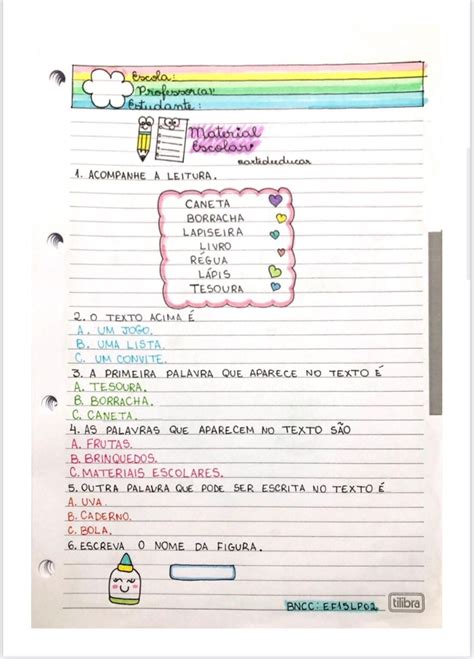 Escola:
Professor(a):
Estudante:
Material
Escolar
@artedeeducar
1. ACOMPANHE A LEITURA.
CANETA
BORRACHA
LAPISEIRA
LIVRO
RÉGUA
LÁPIS
TESOURA
2. O TEXTO ACIMA É
A. UM JOGO.
B. UMA LISTA.
C. UM CONVITE.
3. A PRIMEIRA PALAVRA QUE APARECE NO TEXTO É
A. TESOURA.
B. BORRACHA.
C. CANETA.
4. AS PALAVRAS QUE APARECEM NO TEXTO SÃO
A. FRUTAS.
B. BRINQUEDOS.
C. MATERIAIS ESCOLARES.
5. OUTRA PALAVRA QUE PODE SER ESCRITA NO TEXTO É
A. UVA.
B. CADERNO.
C. BOLA.
6. ESCREVA O NOME DA FIGURA.
BNCC: EF15LP02
tilibra